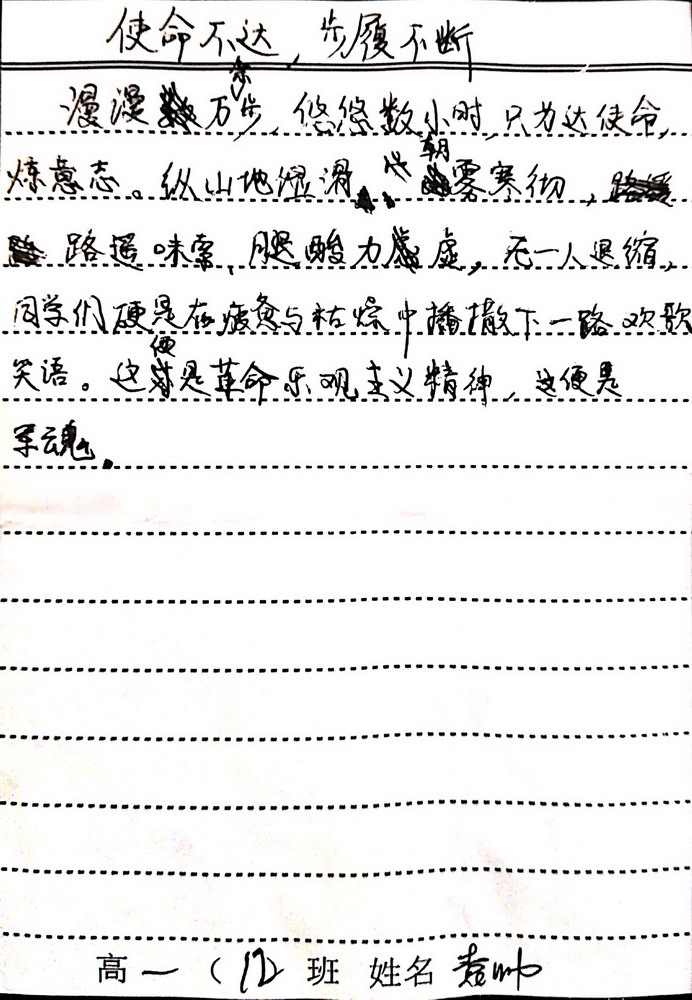 使命不达，步履不断
漫漫万余步，悠悠数小时，只为达使命，
炼意志。纵山地湿滑，朝雾寒彻，
路遥味索，腿酸力虚，无一人退缩，
同学们硬是在疲惫与枯燥中播撒下一路欢歌
笑语。这便是革命乐观主义精神，这便是
军魂。
高一（12）班 姓名 袁帅